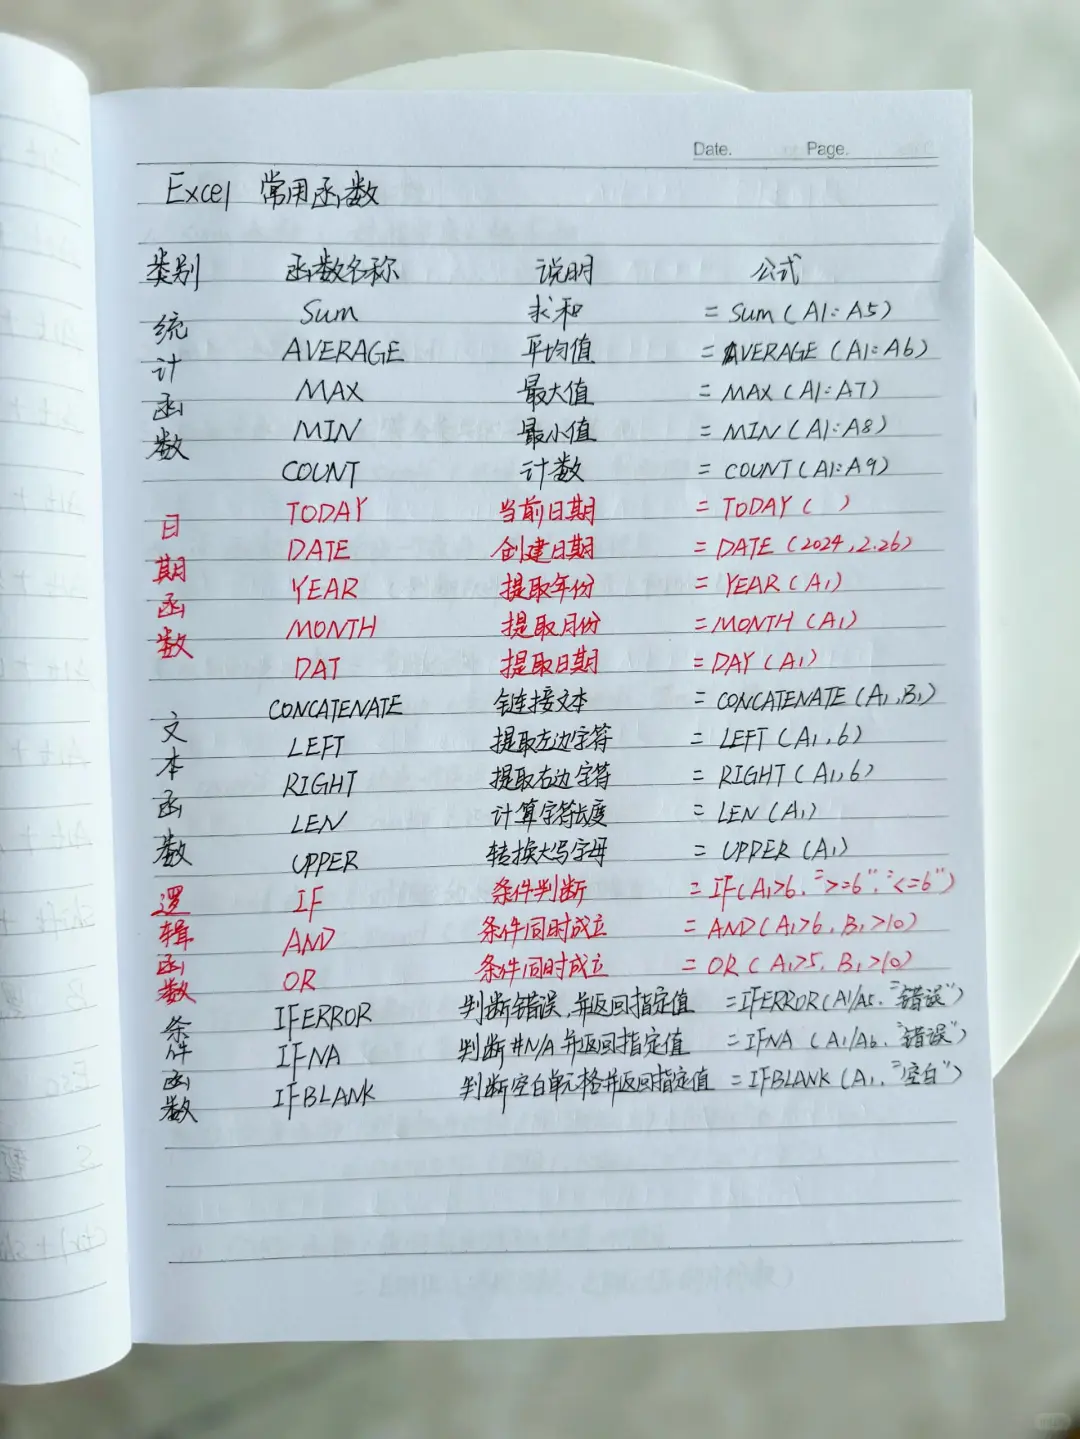 Date. Page.
Excel 常用函数
类别 函数名称 说明 公式
统计函数
Sum 求和 = Sum (A1:A5)
AVERAGE 平均值 = AVERAGE (A1:A6)
MAX 最大值 = MAX (A1:A7)
MIN 最小值 = MIN (A1:A8)
COUNT 计数 = COUNT (A1:A9)
日期函数
TODAY 当前日期 = TODAY ( )
DATE 创建日期 = DATE (2024,2.26)
YEAR 提取年份 = YEAR (A1)
MONTH 提取月份 = MONTH (A1)
DAT 提取日期 = DAY (A1)
文本函数
CONCATENATE 链接文本 = CONCATENATE (A1,B1)
LEFT 提取左边字符 = LEFT (A1,6)
RIGHT 提取右边字符 = RIGHT (A1,6)
LEN 计算字符长度 = LEN (A1)
UPPER 转换大写字母 = UPPER (A1)
逻辑函数
IF 条件判断 = IF(A1>6, ">=6", "<=6")
AND 条件同时成立 = AND(A1>6, B1>10)
OR 条件同时成立 = OR (A1>5, B1>10)
条件函数
IFERROR 判断错误,并返回指定值 =IFERROR(A1/A5, "错误")
IFNA 判断#N/A并返回指定值 =IFNA (A1/A6, "错误")
IFBLANK 判断空白单元格并返回指定值 =IFBLANK (A1, "空白")